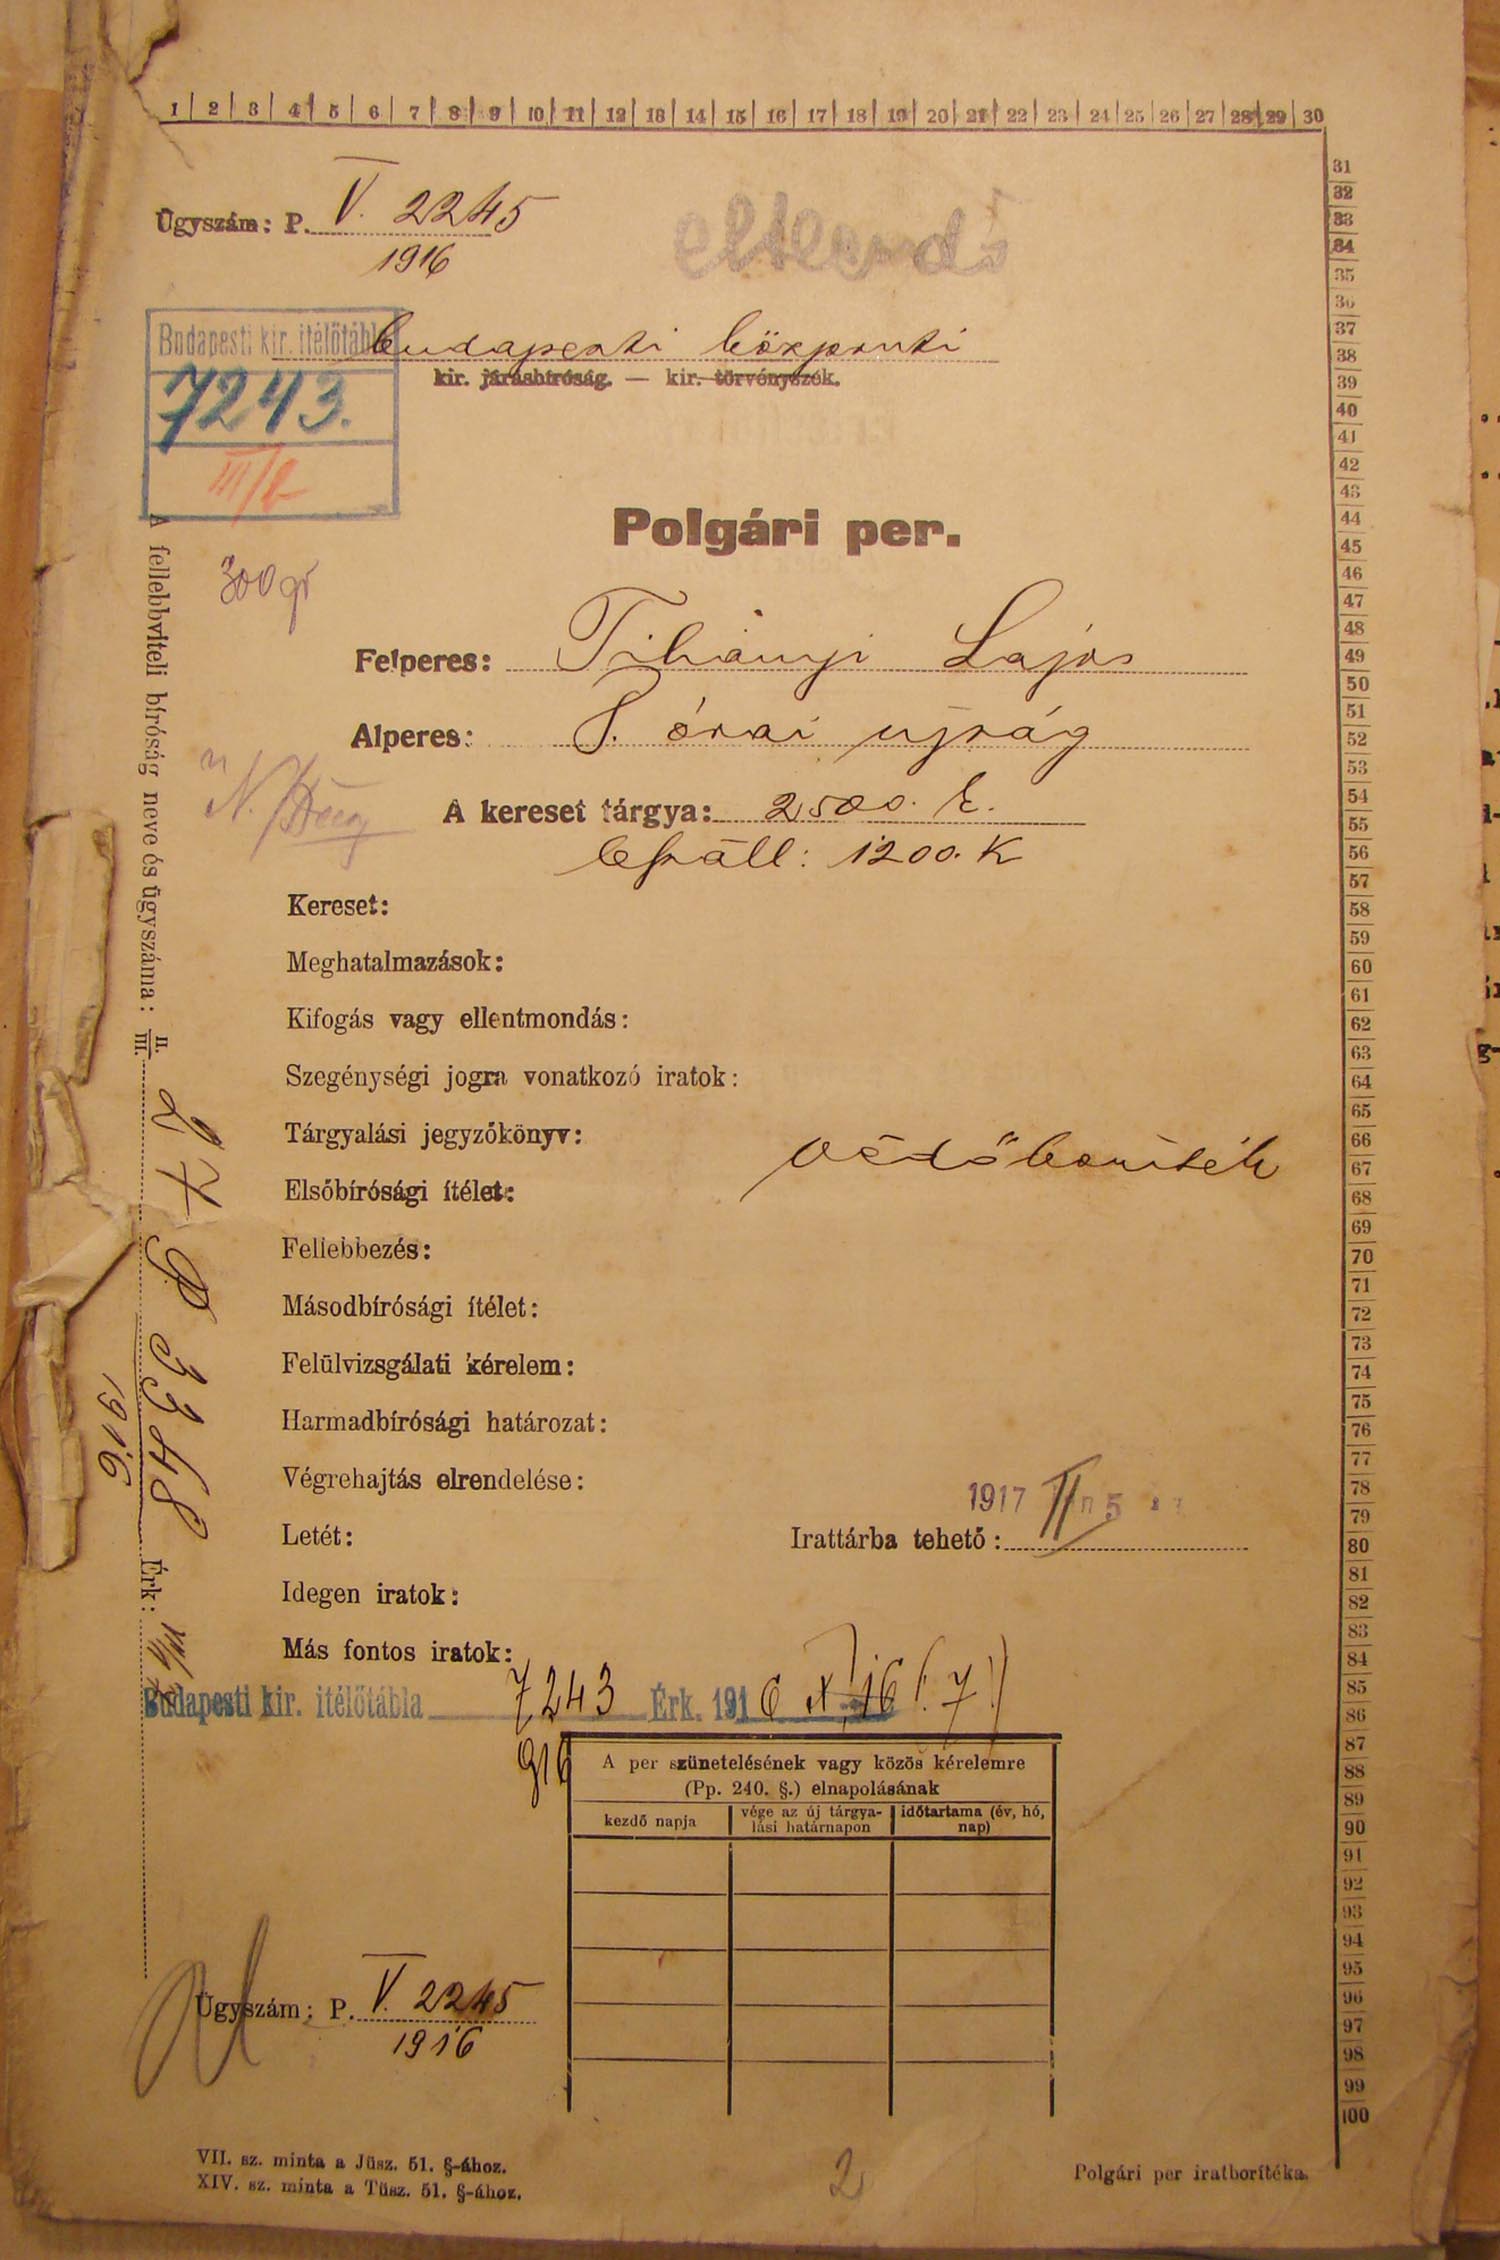 1 2 3 4 5 6 7 8 9 10 11 12 13 14 15 16 17 18 19 20 21 22 23 24 25 26 27 28 29 30
31
32
33
34
35
36
37
38
39
40
41
42
43
44
45
46
47
48
49
50
51
52
53
54
55
56
57
58
59
60
61
62
63
64
65
66
67
68
69
70
71
72
73
74
75
76
77
78
79
80
81
82
83
84
85
86
87
88
89
90
91
92
93
94
95
96
97
98
99
100
Ügyszám: P. V. 2245
1916
Budapesti kir. itélőtábla
budapesti központi
kir. járásbíróság. — kir. törvényszék.
7243.
Polgári per.
300 gr
Felperes: Tihanyi Lajos
Alperes: 8. órai ujság
A kereset tárgya: 2500. K.
leszáll: 1200. K
Kereset:
Meghatalmazások:
Kifogás vagy ellentmondás:
Szegénységi jogra vonatkozó iratok:
Tárgyalási jegyzőkönyv:
védőboriték
Elsőbírósági ítélet:
Fellebbezés:
Másodbírósági ítélet:
Felülvizsgálati kérelem:
Harmadbírósági határozat:
Végrehajtás elrendelése:
1917
Letét:
Irattárba tehető:
Idegen iratok:
Más fontos iratok:
Budapesti kir. itélőtábla 7243 Érk. 1916 X 16 (: 7 :)
916
A per szünetelésének vagy közös kérelemre
(Pp. 240. §.) elnapolásának
kezdő napja
vége az új tárgya-
lási határnapon
időtartama (év, hó,
nap)
Ügyszám: P. V. 2245
1916
VII. sz. minta a Jüsz. 51. §-ához.
XIV. sz. minta a Tüsz. 51. §-ához.
2
Polgári per iratborítéka.
A fellebbviteli bíróság neve és ügyszáma: II. III. P 3348 Érk:
1916